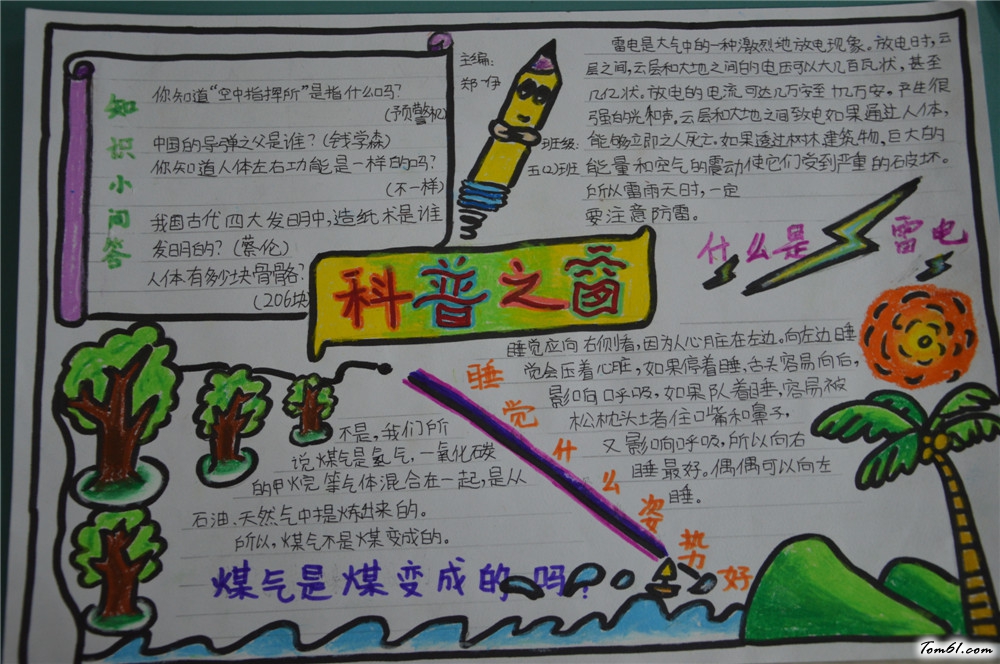 知识小百答
你知道“空中指挥所”是指什么吗?
(预警机)
中国的导弹之父是谁?(钱学森)
你知道人体左右功能是一样的吗?
(不一样)
我国古代四大发明中,造纸术是谁
发明的?(蔡伦)
人体有多少块骨骼?
(206块)
主编:
郑伊
班级:
五(2)班
雷电是大气中的一种激烈地放电现象。放电时,云
层之间,云层和大地之间的电压可以大几百瓦状,甚至
几亿状。放电的电流可达几万安至十几万安。产生很
强的光和声。云层和大地之间致电如果通过人体,
能够立即之人死亡。如果透过树林建筑物,巨大的
能量和空气的震动使它们受到严重的破坏。
所以雷雨天时,一定
要注意防雷。
什么是雷电
科普之窗
睡觉应向右侧者,因为人心脏在左边。向左边睡
觉会压着心脏,如果停着睡,舌头容易向后,
影响呼吸,如果队着睡,容易被
松枕头堵住口嘴和鼻子,
又影响呼吸,所以向右
睡最好。偶偶可以向左
睡。
睡觉什么姿势好
不是,我们所
说煤气是氢气,一氧化碳
的甲烷等气体混合在一起,是从
石油、天然气中提炼出来的。
所以,煤气不是煤变成的。
煤气是煤变成的吗?
Tom61.com